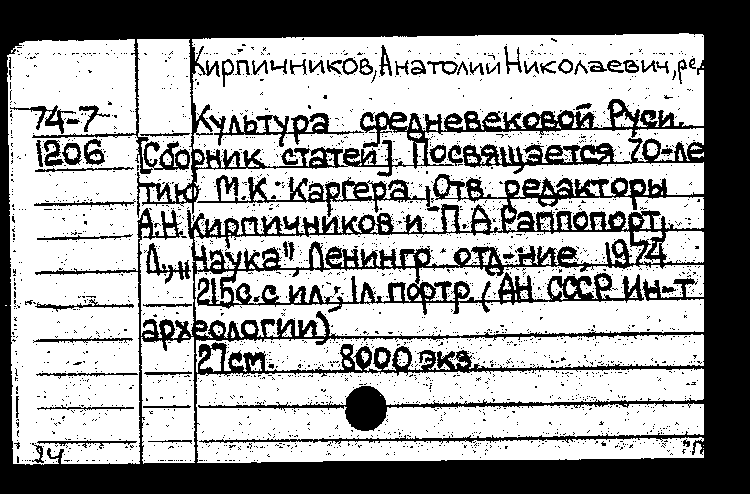 Кирпичников, Анатолий Николаевич, ред
74-7 Культура средневековой Руси.
1206 [Сборник статей]. Посвящается 70-ле
тию М.К. Каргера. Отв. редакторы
А.Н. Кирпичников и П.А. Раппопорт.
Л., "Наука", Ленингр. отд-ние, 1974
215с. с ил.; 1л. портр. (АН СССР. Ин-т
археологии)
27см. 8000 экз.
24